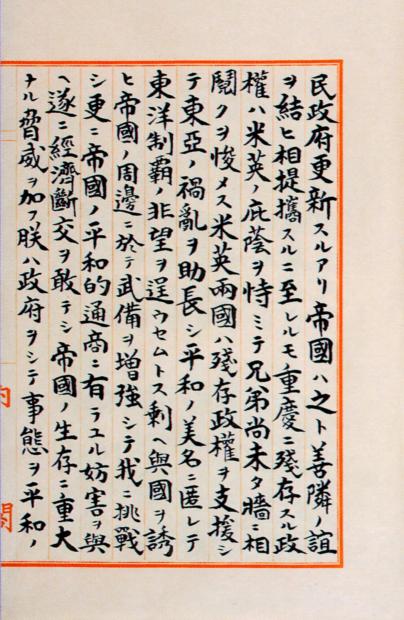 民政府更新スルアリ帝國ハ之ト善隣ノ誼
ヲ結ヒ相提攜スルニ至レルモ重慶ニ殘存スル政
權ハ米英ノ庇蔭ヲ恃ミテ兄弟尚未タ牆ニ相
鬩クヲ悛メス米英兩國ハ殘存政權ヲ支援シ
テ東亞ノ禍亂ヲ助長シ平和ノ美名ニ匿レテ
東洋制覇ノ非望ヲ逞ウセムトス剩ヘ與國ヲ誘
ヒ帝國ノ周邊ニ於テ武備ヲ增強シテ我ニ挑戰
シ更ニ帝國ノ平和的通商ニ有ラユル妨害ヲ與
ヘ遂ニ經濟斷交ヲ敢テシ帝國ノ生存ニ重大
ナル脅威ヲ加フ朕ハ政府ヲシテ事態ヲ平和ノ
內閣